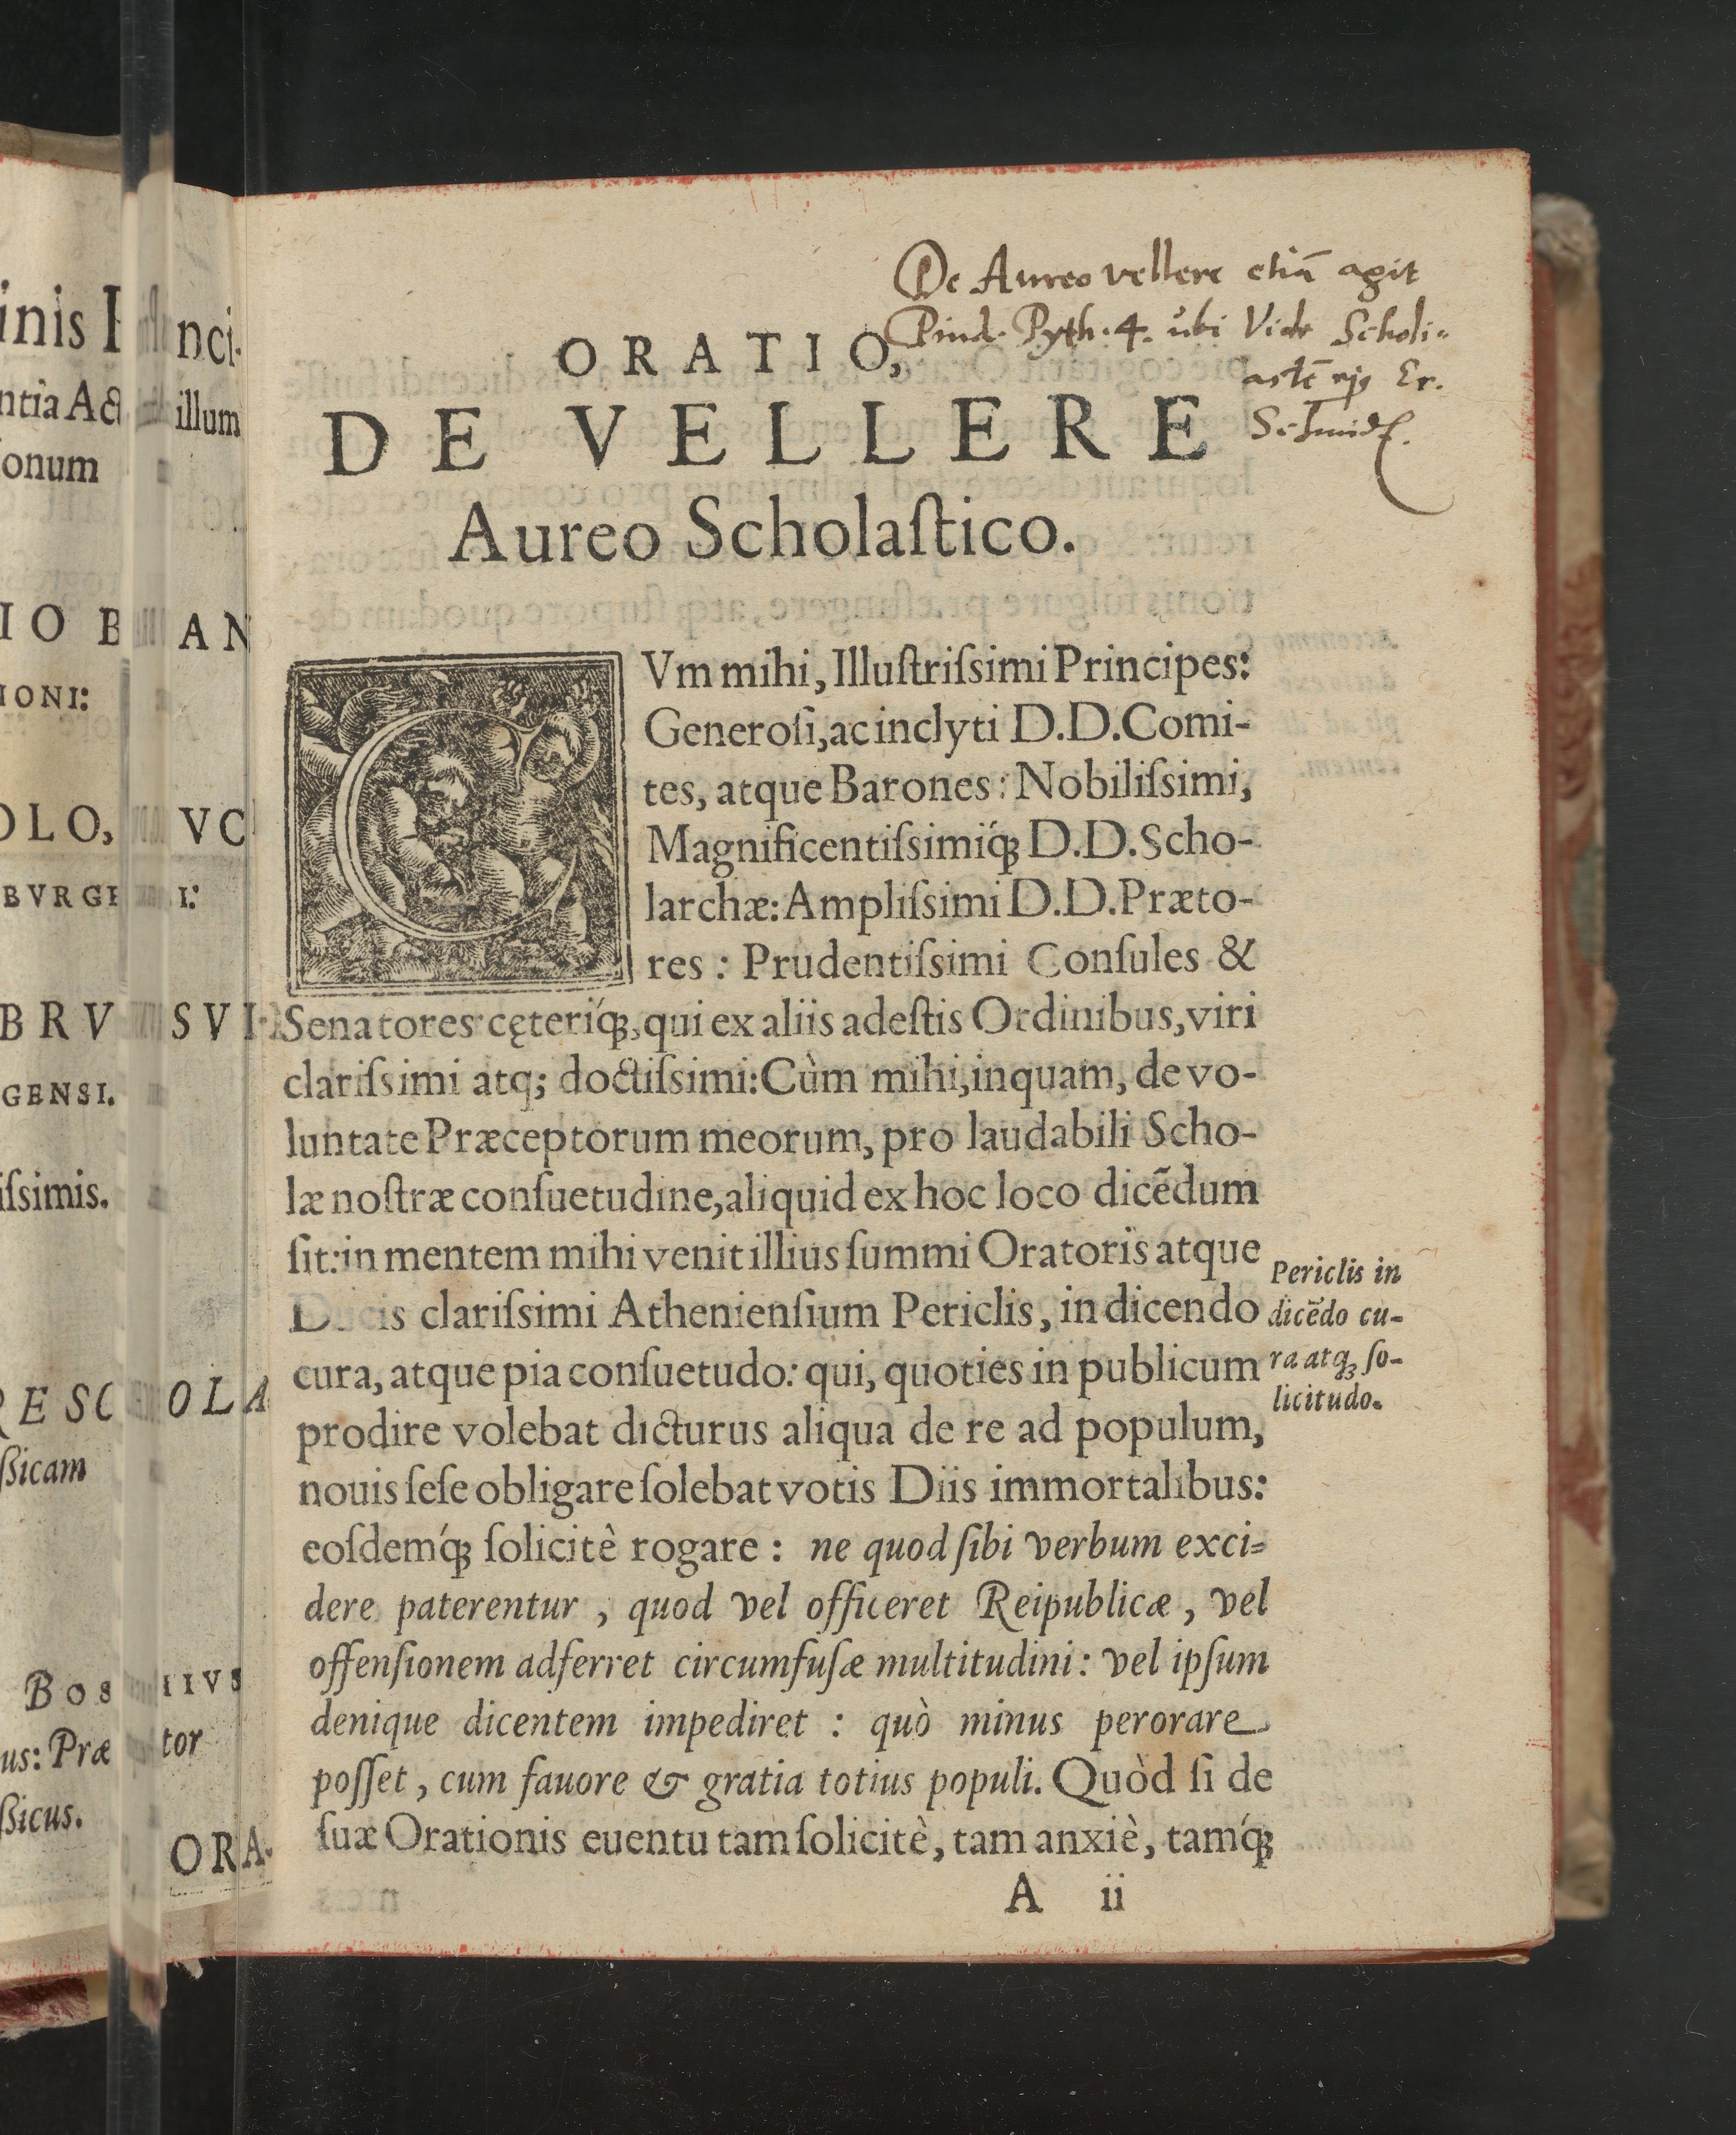 De Aureo vellere etiã agit
Pind. Pyth. 4. ubi Vide Scholi-
astẽ ejq Er.
Schmid.
ORATIO,
DE VELLERE
Aureo Scholaſtico.
CVm mihi, Illuſtriſsimi Principes:
Generoſi, ac inclyti D.D. Comi-
tes, atque Barones: Nobiliſsimi,
Magnificentiſsimiq́ꝫ D.D. Scho-
larchæ: Ampliſsimi D.D. Præto-
res: Prudentiſsimi Conſules &
Senatores cęteriq́ꝫ, qui ex aliis adeſtis Ordinibus, viri
clariſsimi atq; doctiſsimi: Cùm mihi, inquam, de vo-
luntate Præceptorum meorum, pro laudabili Scho-
læ noſtræ conſuetudine, aliquid ex hoc loco dicẽdum
ſit: in mentem mihi venit illius ſummi Oratoris atque
Ducis clariſsimi Athenienſium Periclis, in dicendo
cura, atque pia conſuetudo: qui, quoties in publicum
prodire volebat dicturus aliqua de re ad populum,
nouis ſeſe obligare ſolebat votis Diis immortalibus:
eoſdemq́ꝫ ſolicitè rogare: ne quod ſibi verbum exci-
dere paterentur, quod vel officeret Reipublicæ, vel
offenſionem adferret circumfuſæ multitudini: vel ipſum
denique dicentem impediret: quò minus perorare
poſſet, cum fauore & gratia totius populi. Quòd ſi de
ſuæ Orationis euentu tam ſolicitè, tam anxiè, tamq́ꝫ
A ii
Periclis in
dicẽdo cu-
ra atqꝫ ſo-
licitudo.
inis
nci-
ntia Act
illum
onum
IO B
AN
IONI:
OLO,
VC
BVRGE
I:
BRV
SVI
GENSI.
iſsimis.
RE SC
OLA
ßicam
BOS
IIVS
us: Præ
tor
ßicus.
ORA-